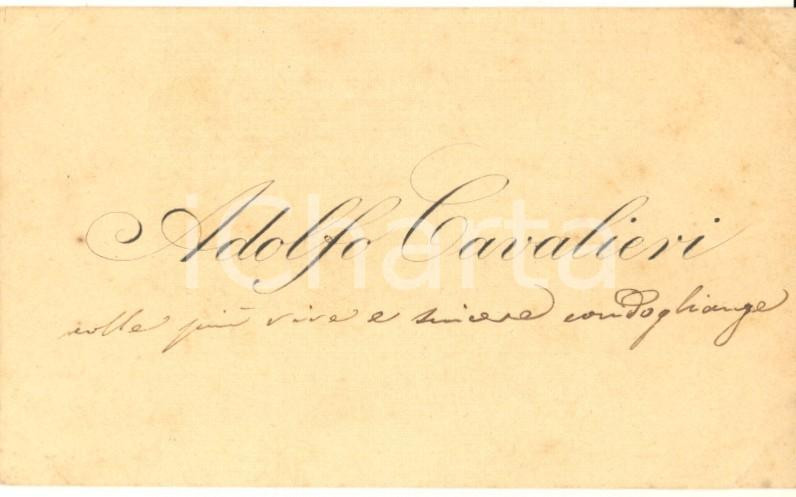 Adolfo Cavalieri
iCharta
colle più vive e sincere condoglianze